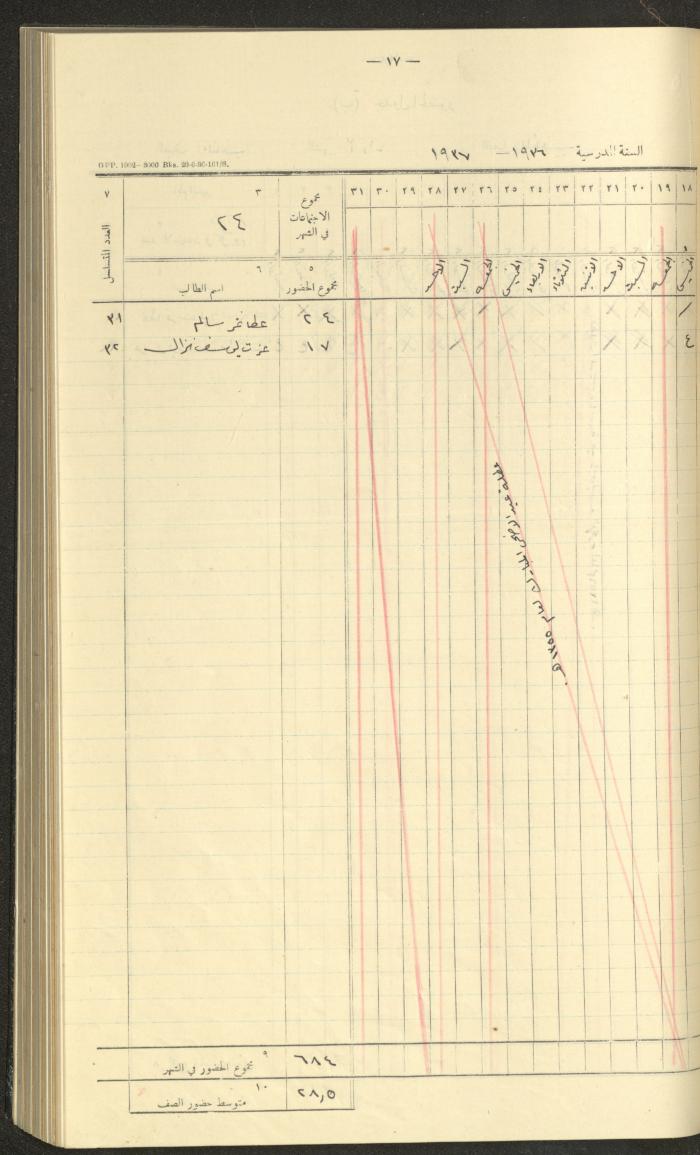 — ١٧ —
السنة المدرسية ١٩٣٦ — ١٩٣٧
G.P.P. 1002— 3000 Bks. 20-6-36-101/S.
١٨ ١٩ ٢٠ ٢١ ٢٢ ٢٣ ٢٤ ٢٥ ٢٦ ٢٧ ٢٨ ٢٩ ٣٠ ٣١ مجموع الاجتماعات في الشهر ٣ ٢٤ ٧ العدد المتسلسل
الخميس الجمعة السبت الاحد الاثنين الثلاثاء الاربعاء الخميس الجمعة السبت الاحد
٥ مجموع الحضور ٦ اسم الطالب
٢٤ عطا نمر سالم ٣١
٤ ١٧ عزت يوسف نزال ٣٢
عطلة عيد الاضحى المبارك لعام ١٣٥٥ هـ.
٦٨٤ ٩ مجموع الحضور في الشهر
٢٨,٥ ١٠ متوسط حضور الصف